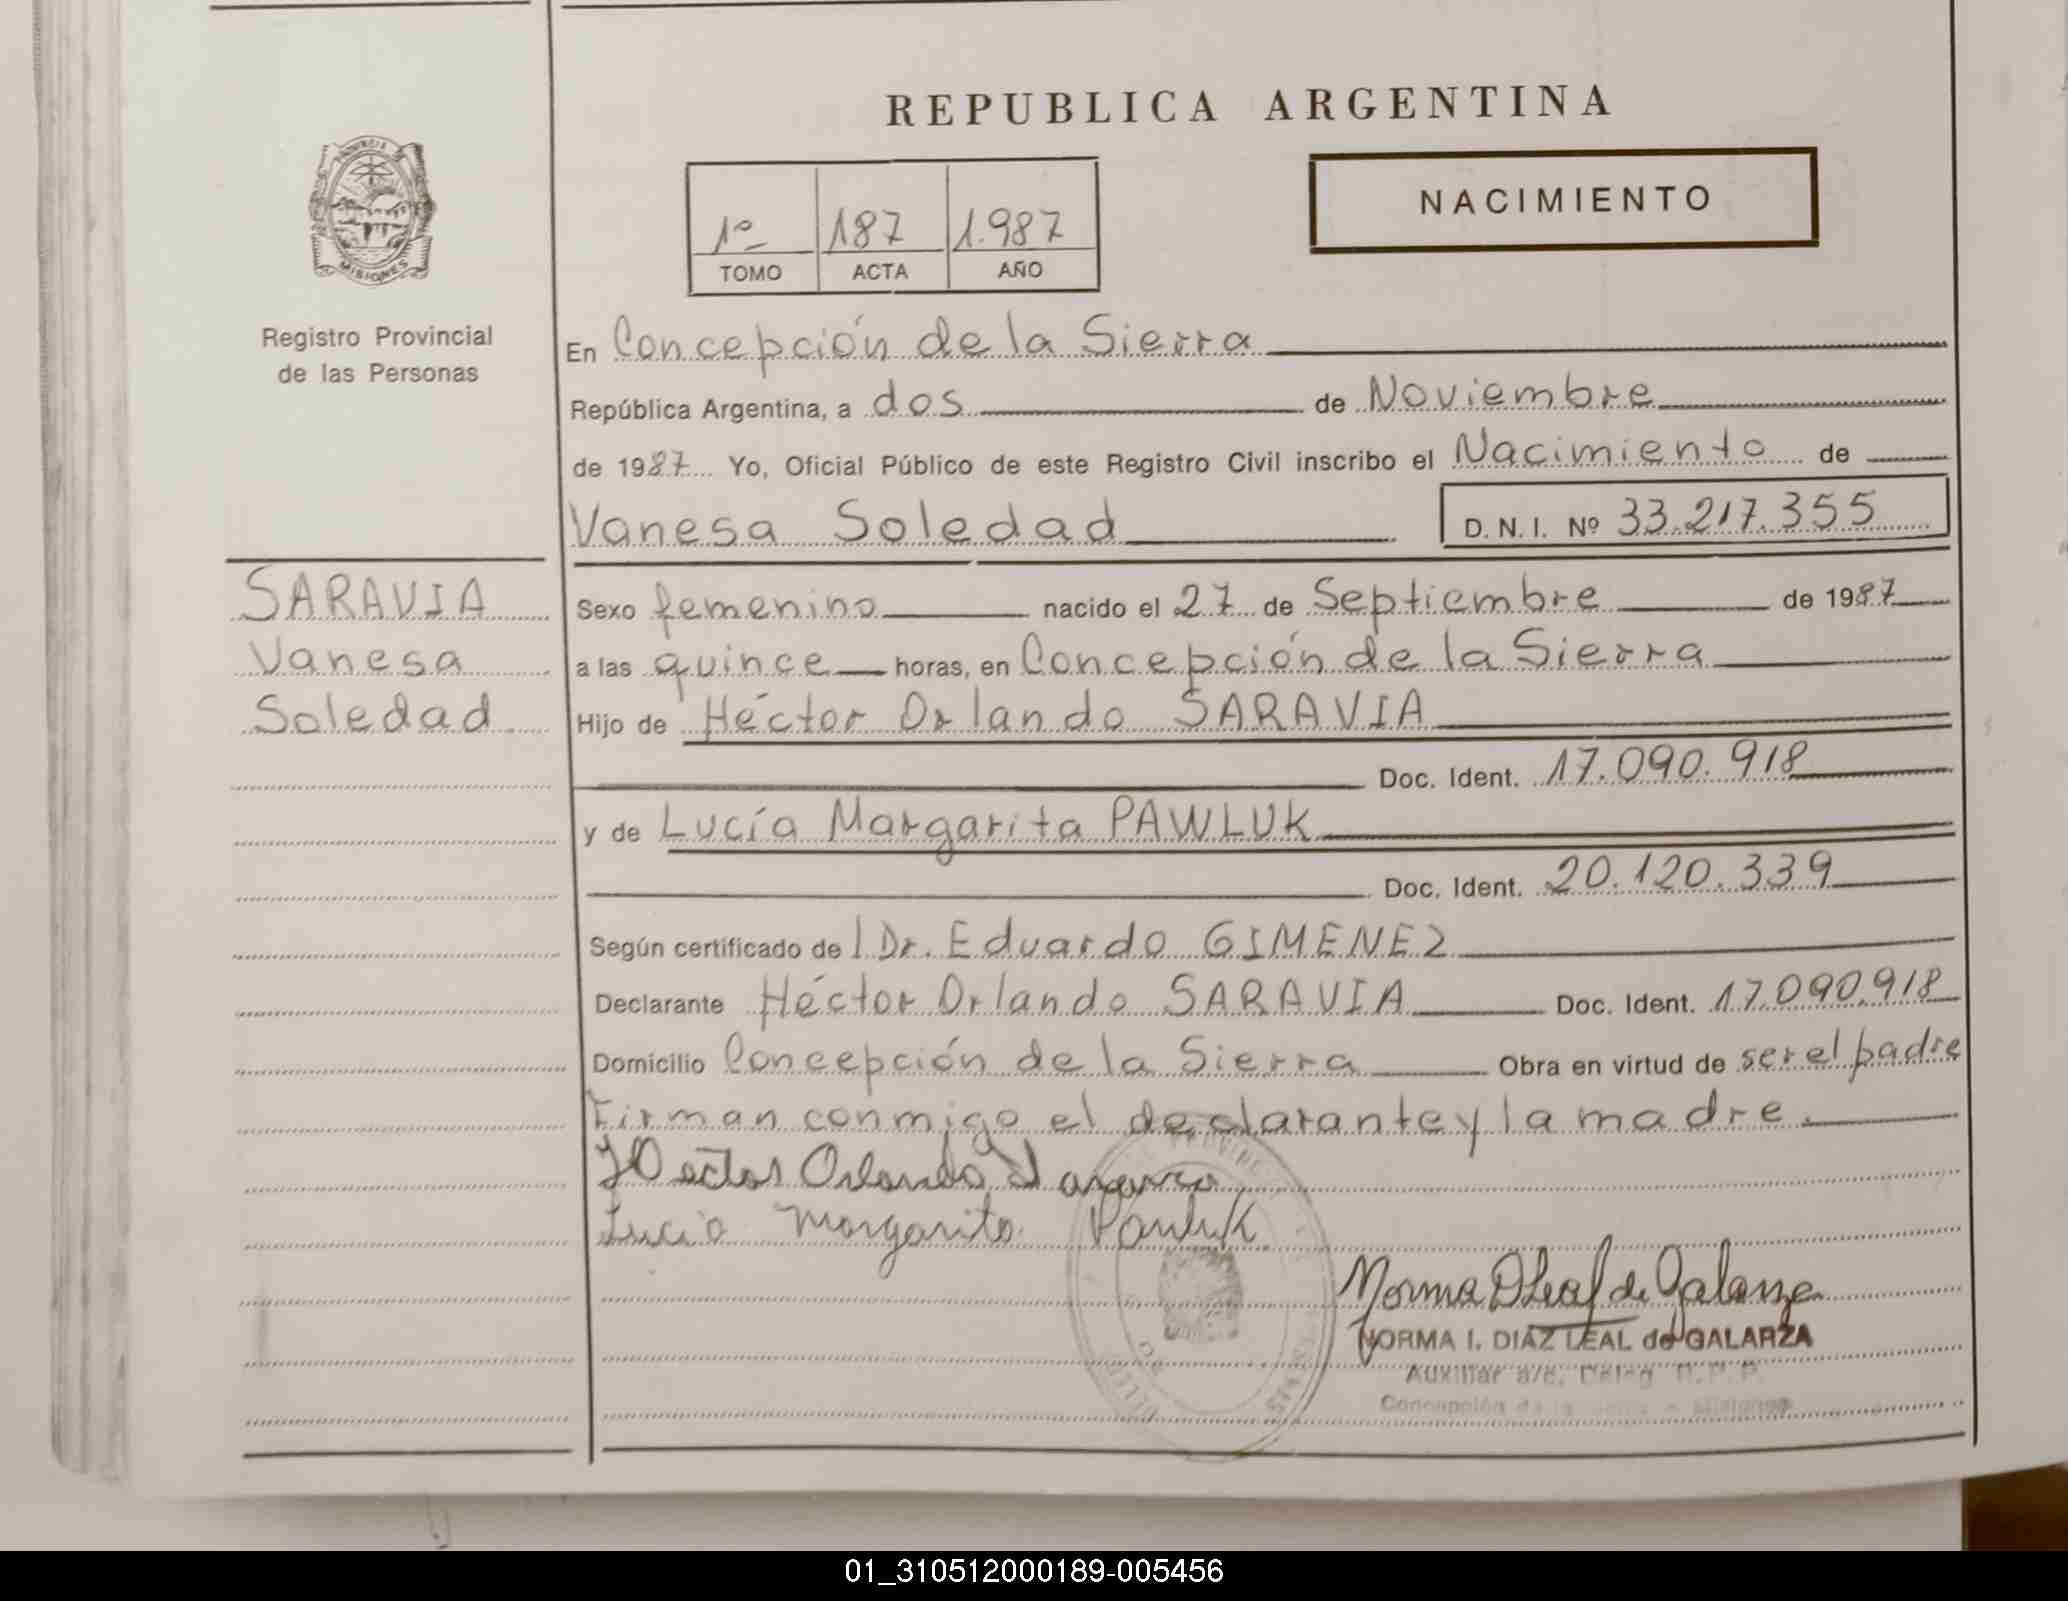 REPUBLICA ARGENTINA
NACIMIENTO
1º 187 1.987
TOMO ACTA AÑO
PROVINCIA DE
MISIONES
Registro Provincial
de las Personas
SARAVIA
Vanesa
Soledad
En Concepción de la Sierra
República Argentina, a dos de Noviembre
de 1987 Yo, Oficial Público de este Registro Civil inscribo el Nacimiento de
Vanesa Soledad D. N. I. Nº 33.217.355
Sexo femenino nacido el 27 de Septiembre de 1987
a las quince horas, en Concepción de la Sierra
Hijo de Héctor Orlando SARAVIA
Doc. Ident. 17.090.918
y de Lucía Margarita PAWLUK
Doc. Ident. 20.120.339
Según certificado de l Dr. Eduardo GIMENEZ
Declarante Héctor Orlando SARAVIA Doc. Ident. 17.090.918
Domicilio Concepción de la Sierra Obra en virtud de ser el padre
Firman conmigo el declarante y la madre.
Hector Orlando Saravia
Lucia Margarita Pawluk
Norma D Leal de Galarza
NORMA I. DIAZ LEAL de GALARZA
Auxiliar a/c. Deleg R. P. P.
Concepción de la Sierra - Misiones
01_310512000189-005456